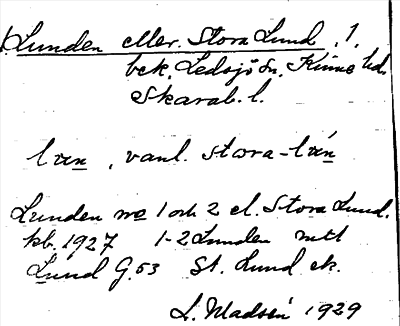 Lunden eller Stora Lund, 1.
bek. Ledsjö sn, Kinne hd.
Skarab. l.
lun, vanl. stora-lun
Lunden no 1 och 2 el. Stora Lund.
kb. 1927 1-2 Lunden mtl
Lund G. 53 St. Lund ek.
L. Madsén 1929